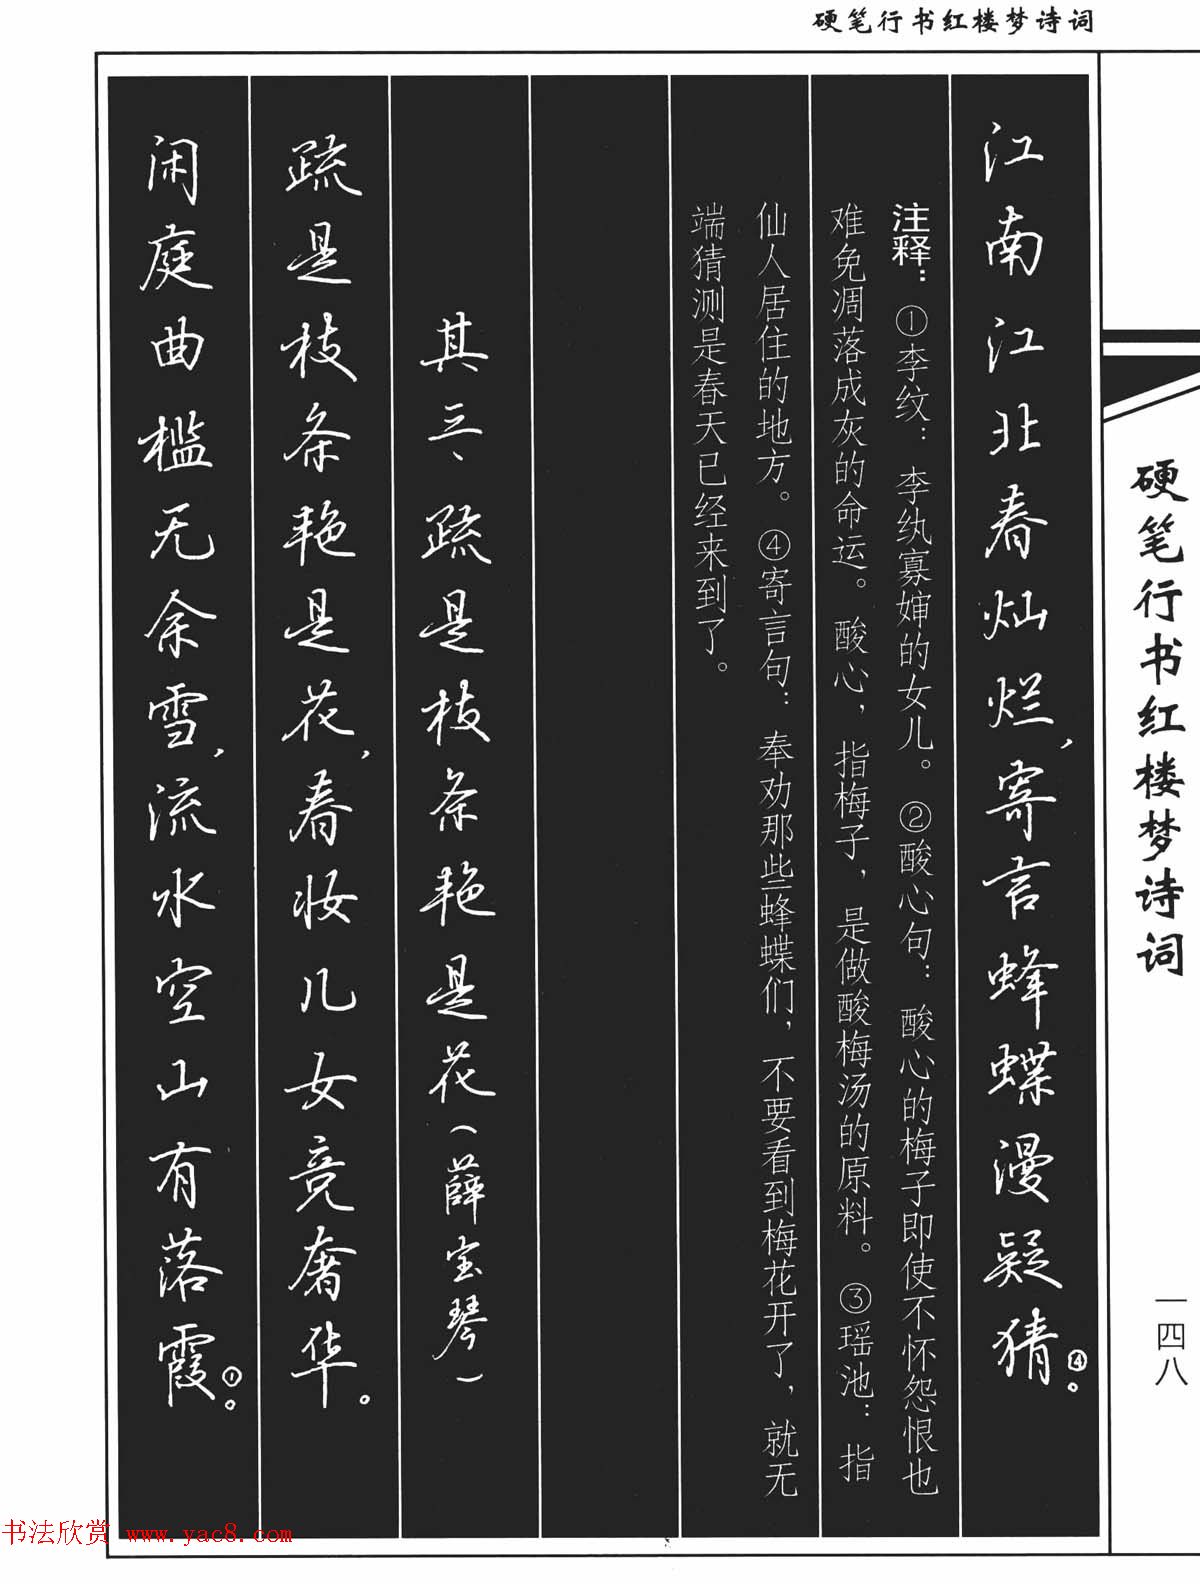 硬笔行书红楼梦诗词
江南江北春灿烂，寄言蜂蝶漫疑猜④。
注释：①李纹：李纨寡婶的女儿。②酸心句：酸心的梅子即使不怀怨恨也
难免凋落成灰的命运。酸心，指梅子，是做酸梅汤的原料。③瑶池：指
仙人居住的地方。④寄言句：奉劝那些蜂蝶们，不要看到梅花开了，就无
端猜测是春天已经来到了。
其三、疏是枝条艳是花（薛宝琴）
疏是枝条艳是花，春妆儿女竞奢华。
闲庭曲槛无余雪，流水空山有落霞①。
硬笔行书红楼梦诗词
一四八
书法欣赏 www.yac8.com